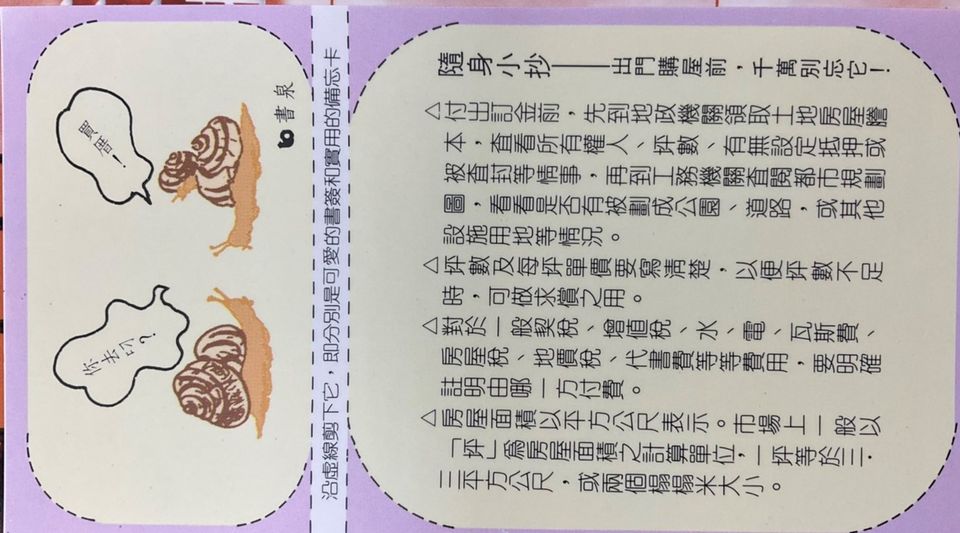 你去叨?
買厝!
書泉
沿虛線剪下它,即分別是可愛的書簽和實用的備忘卡
隨身小抄——出門購屋前,千萬別忘它!
△付出訂金前,先到地政機關領取土地房屋謄
本,查看所有權人、坪數、有無設定抵押或
被查封等情事,再到工務機關查閱都市規劃
圖,看看是否有被劃成公園、道路,或其他
設施用地等情況。
△坪數及每坪單價要寫清楚,以便坪數不足
時,可做求償之用。
△對於一般契稅、增值稅、水、電、瓦斯費、
房屋稅、地價稅、代書費等等費用,要明確
註明由哪一方付費。
△房屋面積以平方公尺表示。市場上一般以
「坪」為房屋面積之計算單位,一坪等於三.
三平方公尺,或兩個榻榻米大小。